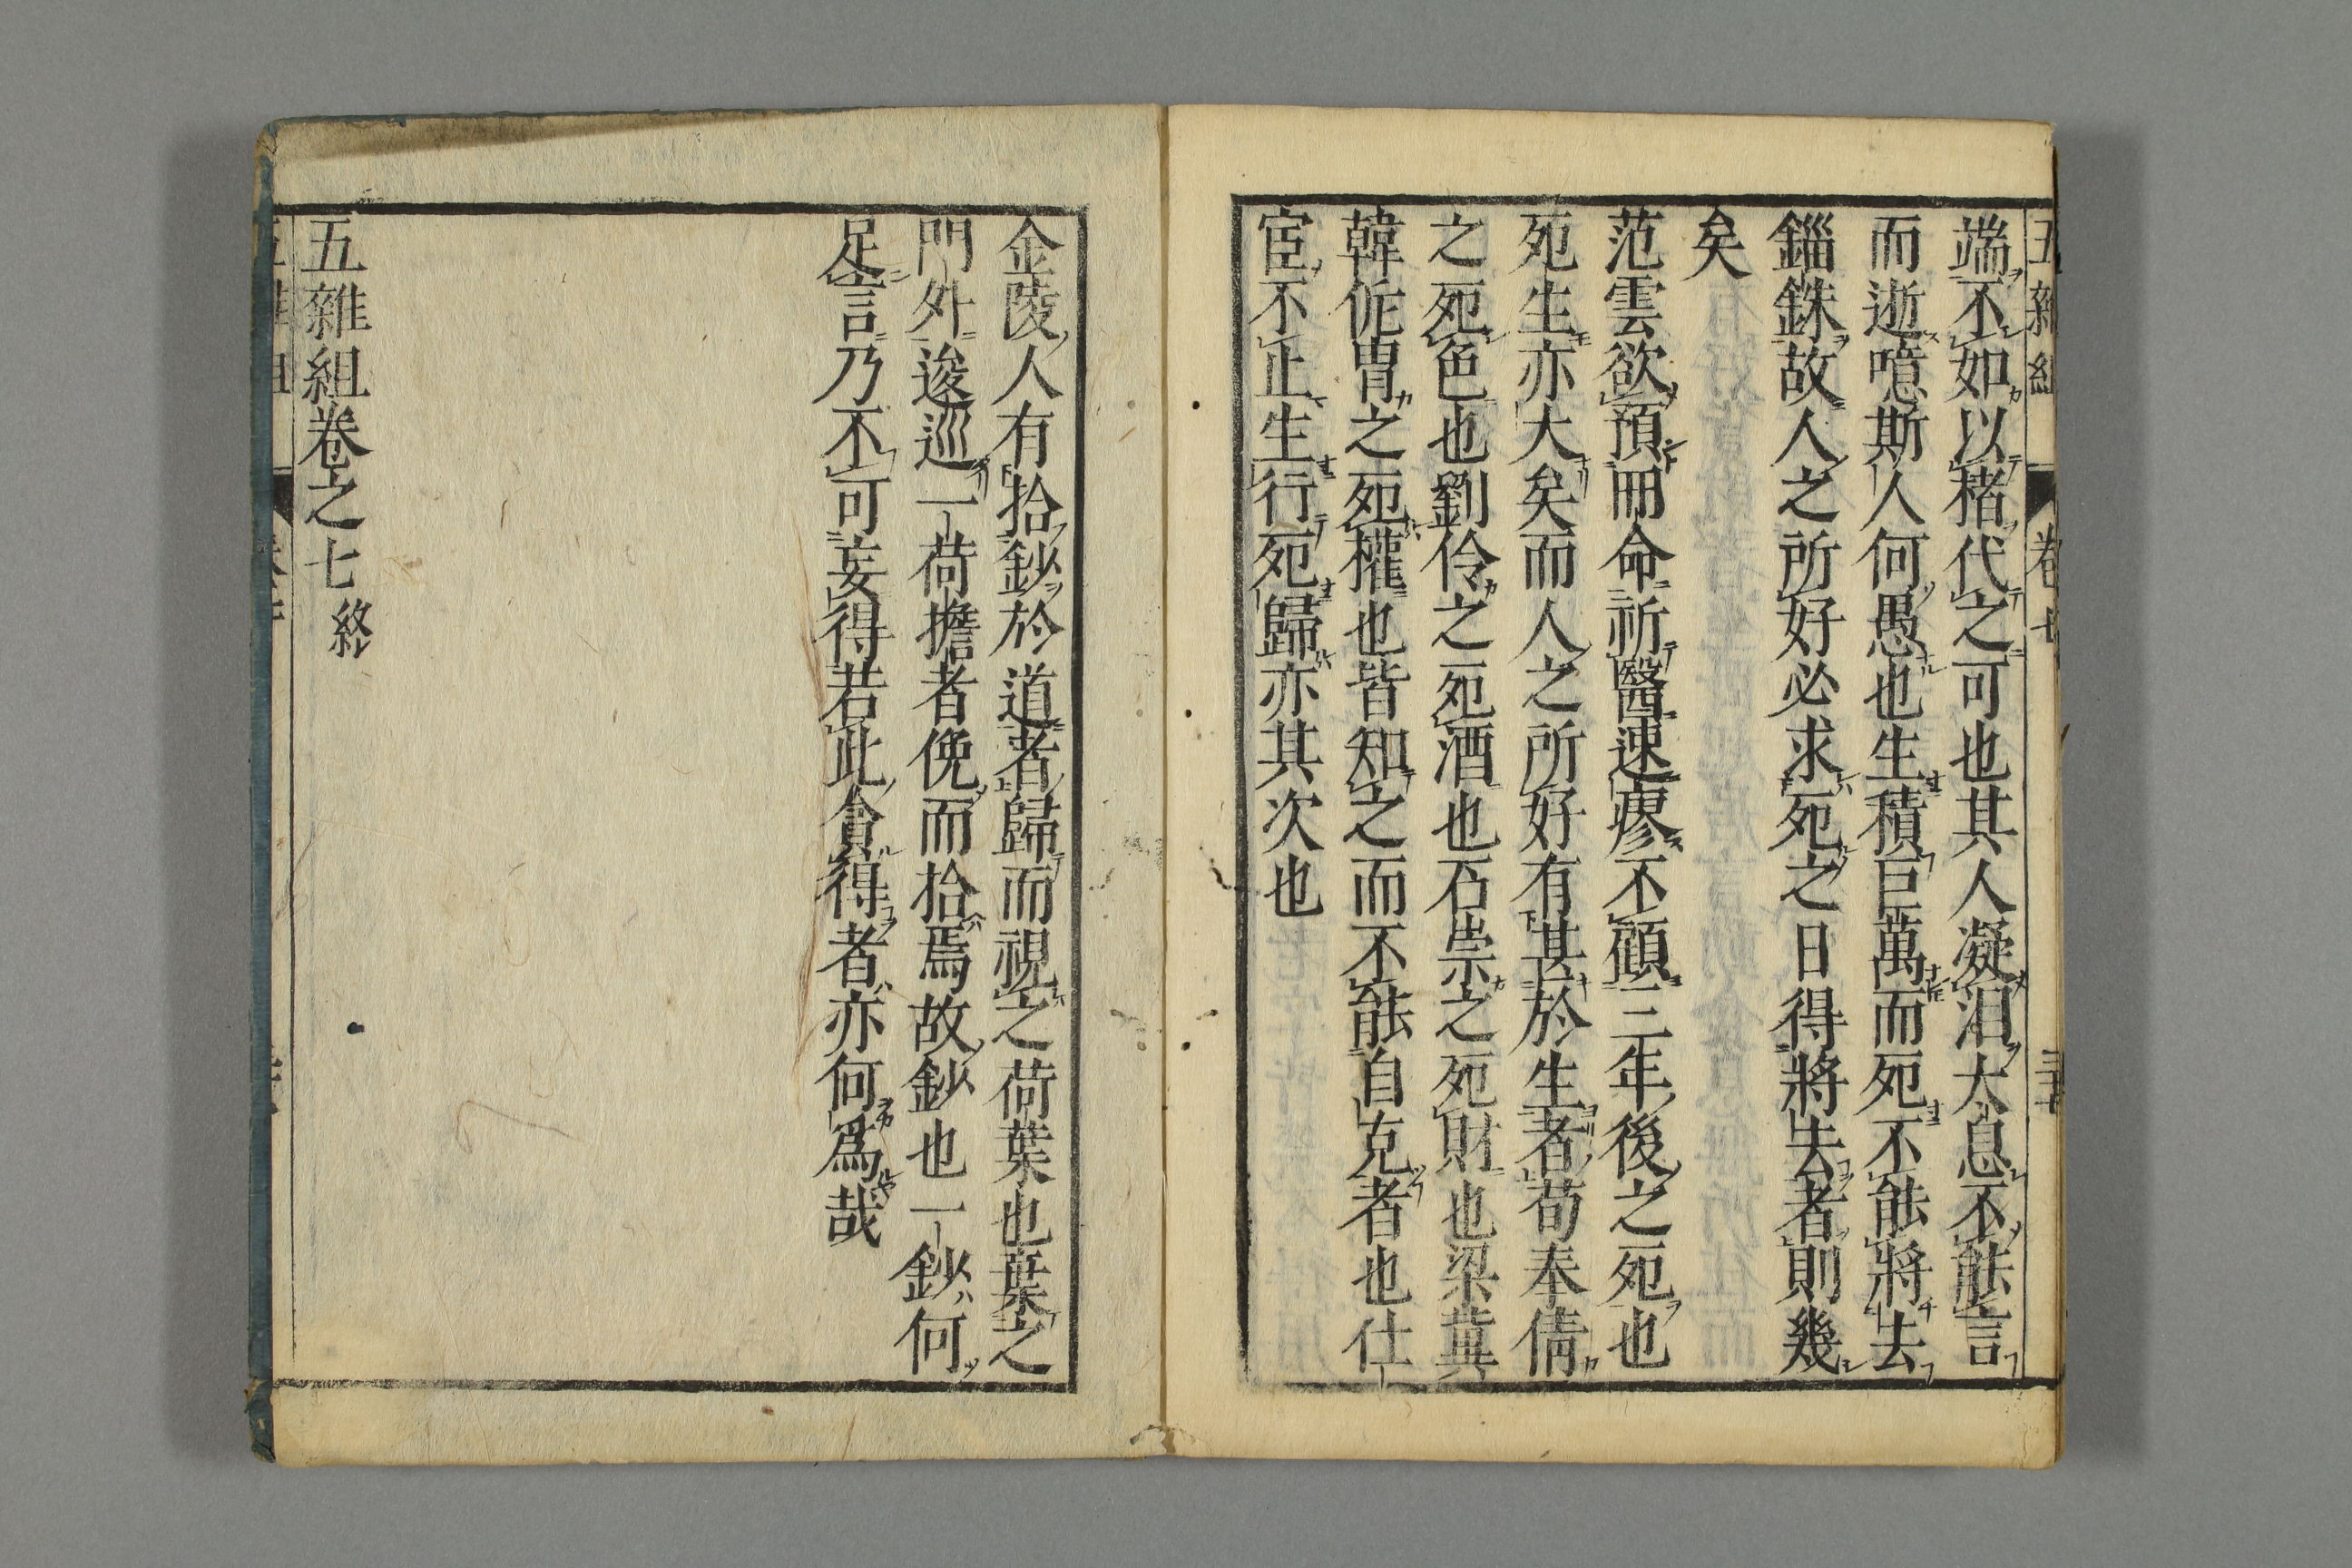 五雜組 卷七
端不如以楮代之可也其人凝泪太息不能言
而逝噫斯人何愚也生積巨萬而死不能將去
錙銖故人之所好必求死之日得將去者則幾
矣
范雲欲預冊命祈醫速瘳不顧三年後之死也
死生亦大矣而人之所好有甚於生者荀奉倩
之死色也劉伶之死酒也石崇之死財也梁冀
韓侂冑之死權也皆知之而不能自克者也仕
宦不止生行死歸亦其次也
金陵人有拾鈔於道者歸而視之荷葉也棄之
門外逡巡一荷擔者俛而拾焉故鈔也一鈔何
足言乃不可妄得若此貪得者亦何爲哉
五雜組卷之七終